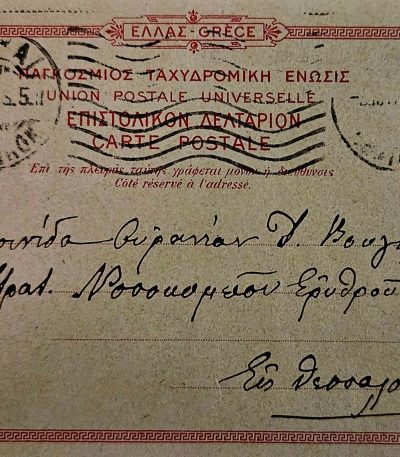 ΕΛΛΑΣ-GRÈCE
ΠΑΓΚΟΣΜΙΟΣ ΤΑΧΥΔΡΟΜΙΚΗ ΕΝΩΣΙΣ
UNION POSTALE UNIVERSELLE
ΕΠΙΣΤΟΛΙΚΟΝ ΔΕΛΤΑΡΙΟΝ
CARTE POSTALE
Ἐπὶ τῆς πλευρᾶς ταύτης γράφεται μόνον ἡ διεύθυνσις
Côté réservé à l'adresse.
Οὐρανίαν Δ.
Νοσοκομεῖον Ἐρυθροῦ
Εἰς Θεσσαλο